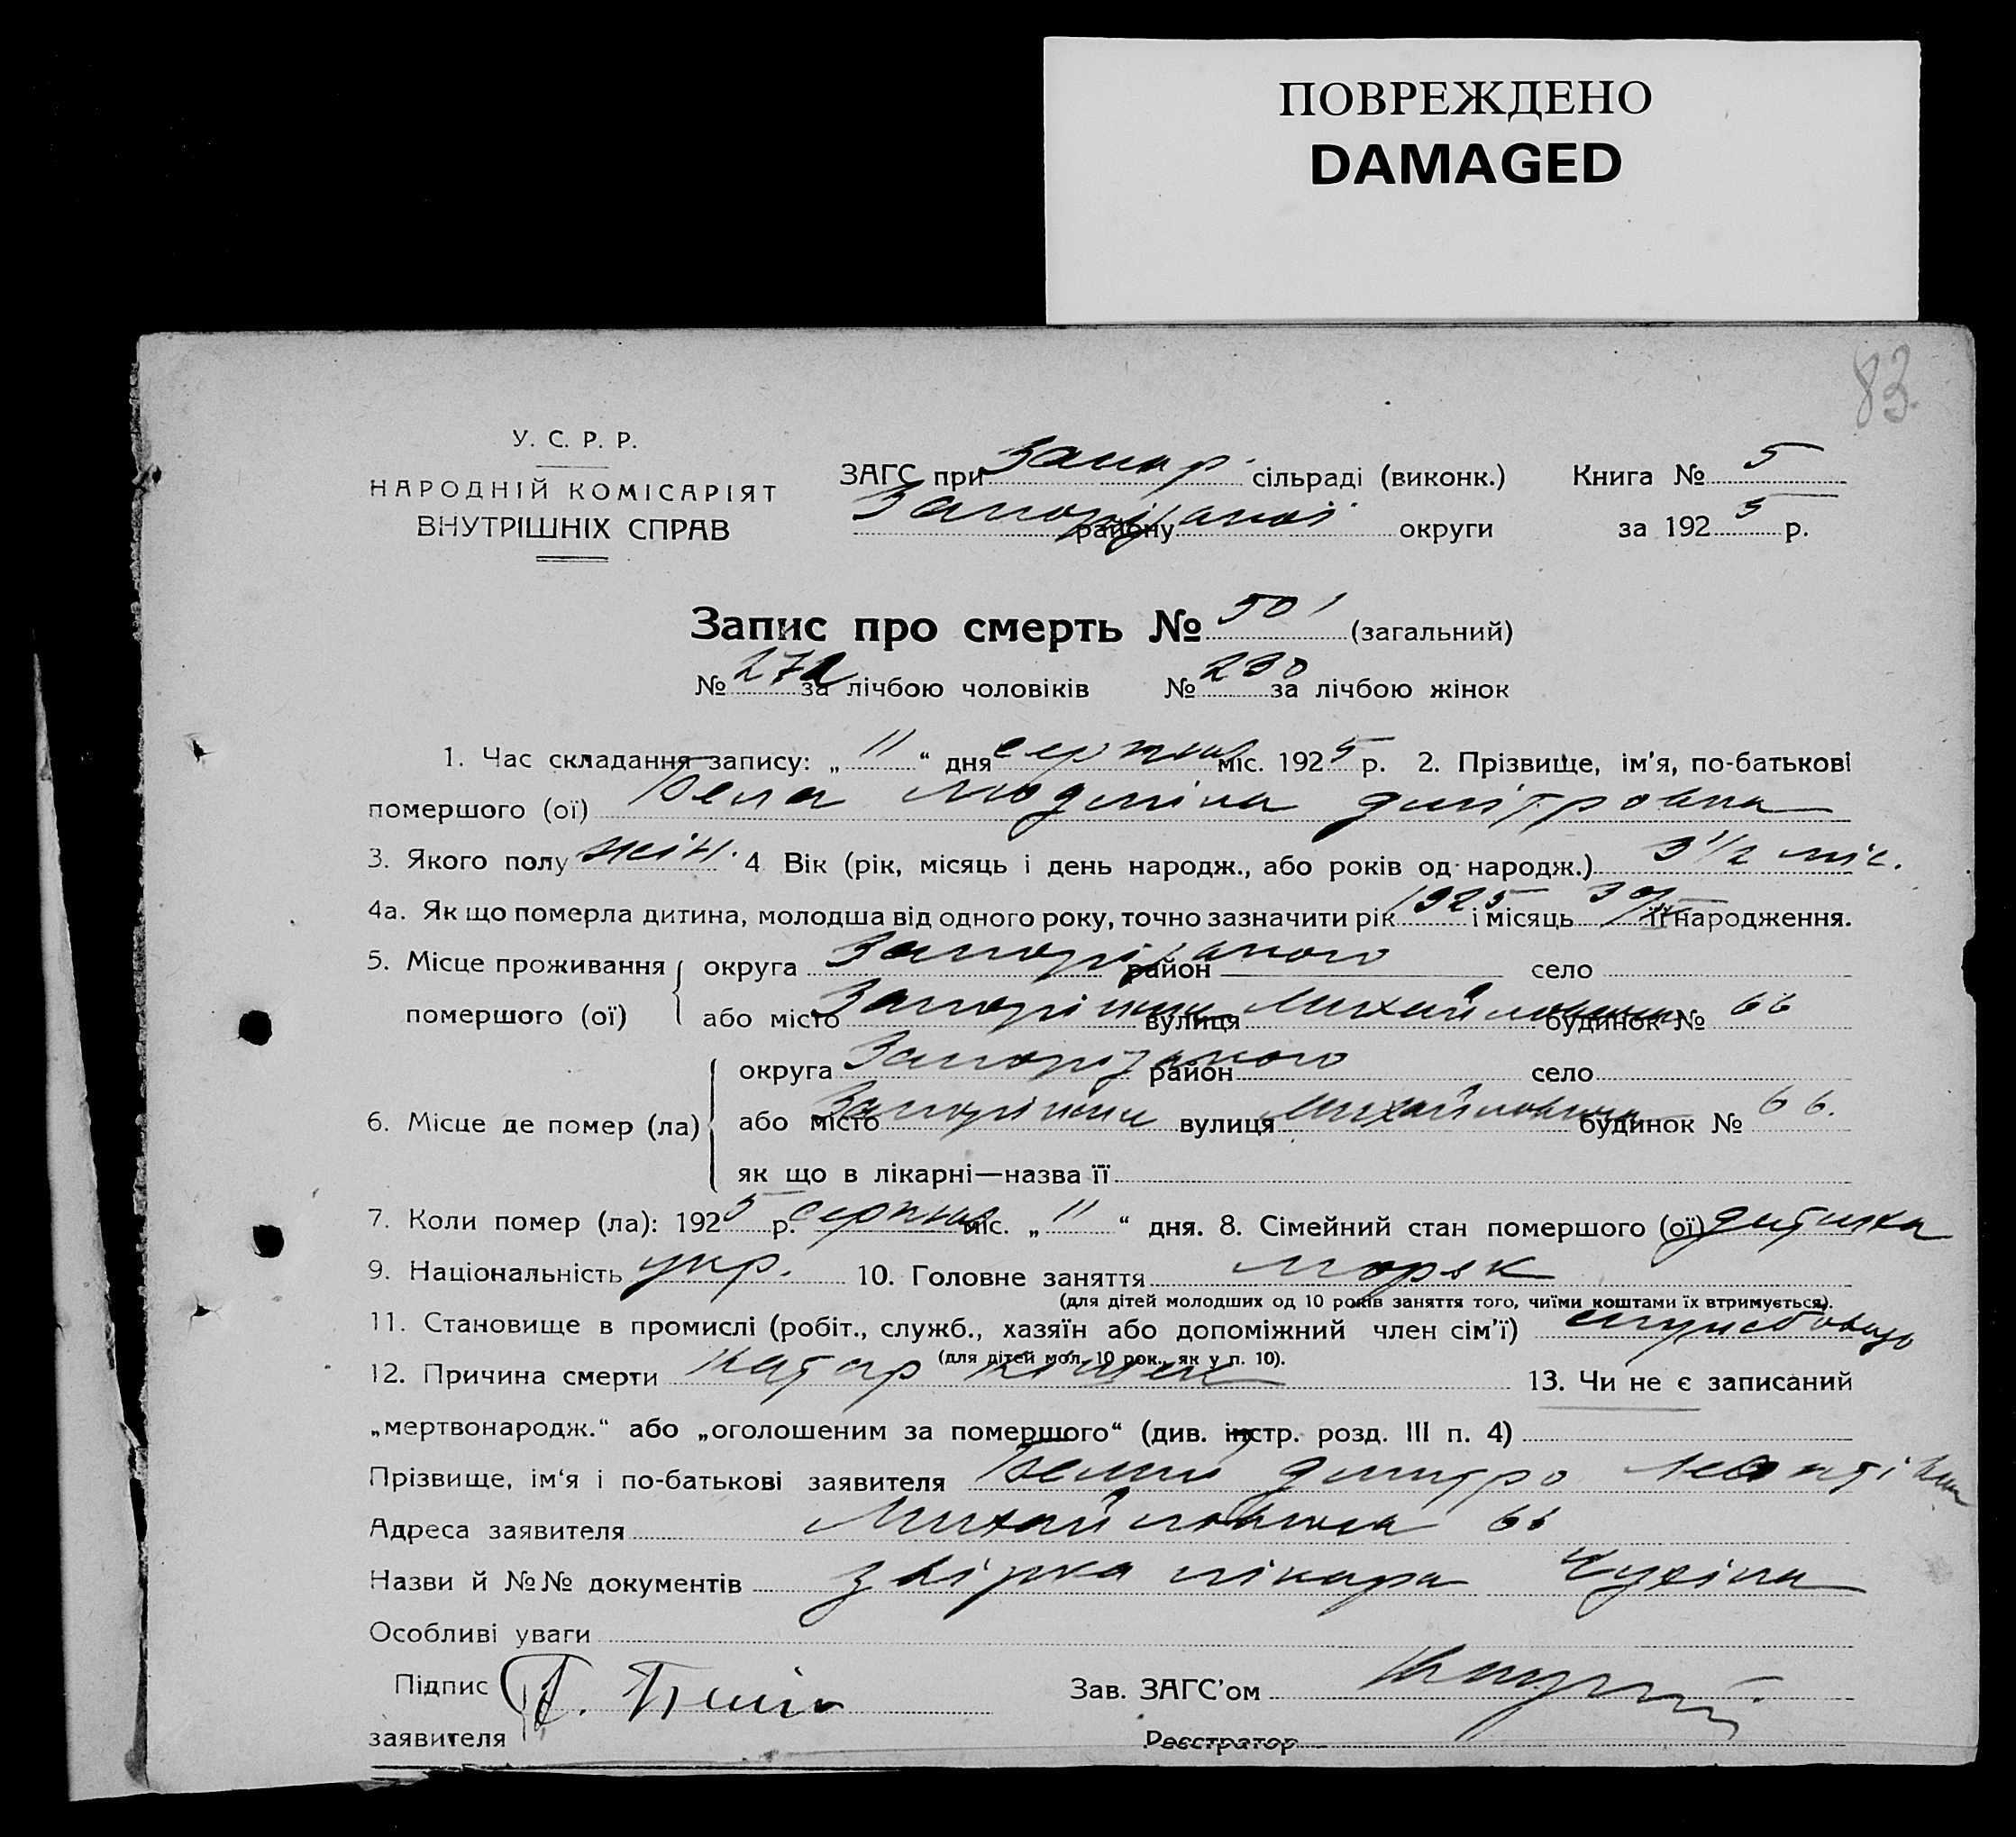 ПОВРЕЖДЕНО
DAMAGED
83.
У. С. Р. Р.
НАРОДНІЙ КОМІСАРІЯТ
ВНУТРІШНІХ СПРАВ
ЗАГС при Запор. сільраді (виконк.) Книга № 5
району округи за 1925 р.
Запис про смерть № 501 (загальний)
№ 271 за лічбою чоловіків № 230 за лічбою жінок
1. Час складання запису: „11“ дня серпня міс. 1925 р. 2. Прізвище, ім'я, по-батькові
помершого (ої) Бела Людміла Дмітровна
3. Якого полу жін. 4 Вік (рік, місяць і день народж., або років од народж.) 3 1/2 міс.
4а. Як що померла дитина, молодша від одного року, точно зазначити рік 1925 і місяць її народження.
5. Місце проживання округа Запорізького район село
помершого (ої) або місто Запоріжжя вулиця Михайловська будинок № 66
округа Запорізького район село
6. Місце де помер (ла) або місто Запоріжжя вулиця Михайловська будинок № 66.
як що в лікарні—назва її
7. Коли помер (ла): 1925 р. серпня міс. „11“ дня. 8. Сімейний стан помершого (ої) дитина
9. Національність укр. 10. Головне заняття моряк
(для дітей молодших од 10 років заняття того, чиїми коштами їх втримується).
11. Становище в промислі (робіт., служб., хазяїн або допоміжний член сім'ї)
(для дітей мол. 10 рок., як у п. 10).
12. Причина смерти катар кишек 13. Чи не є записаний
„мертвонародж.“ або „оголошеним за помершого“ (див. інстр. розд. III п. 4)
Прізвище, ім'я і по-батькові заявителя Белий Дмитро
Адреса заявителя Михайловська 66
Назви й №№ документів лікара
Особливі уваги
Підпис
заявителя
Зав. ЗАГС'ом
Реєстратор